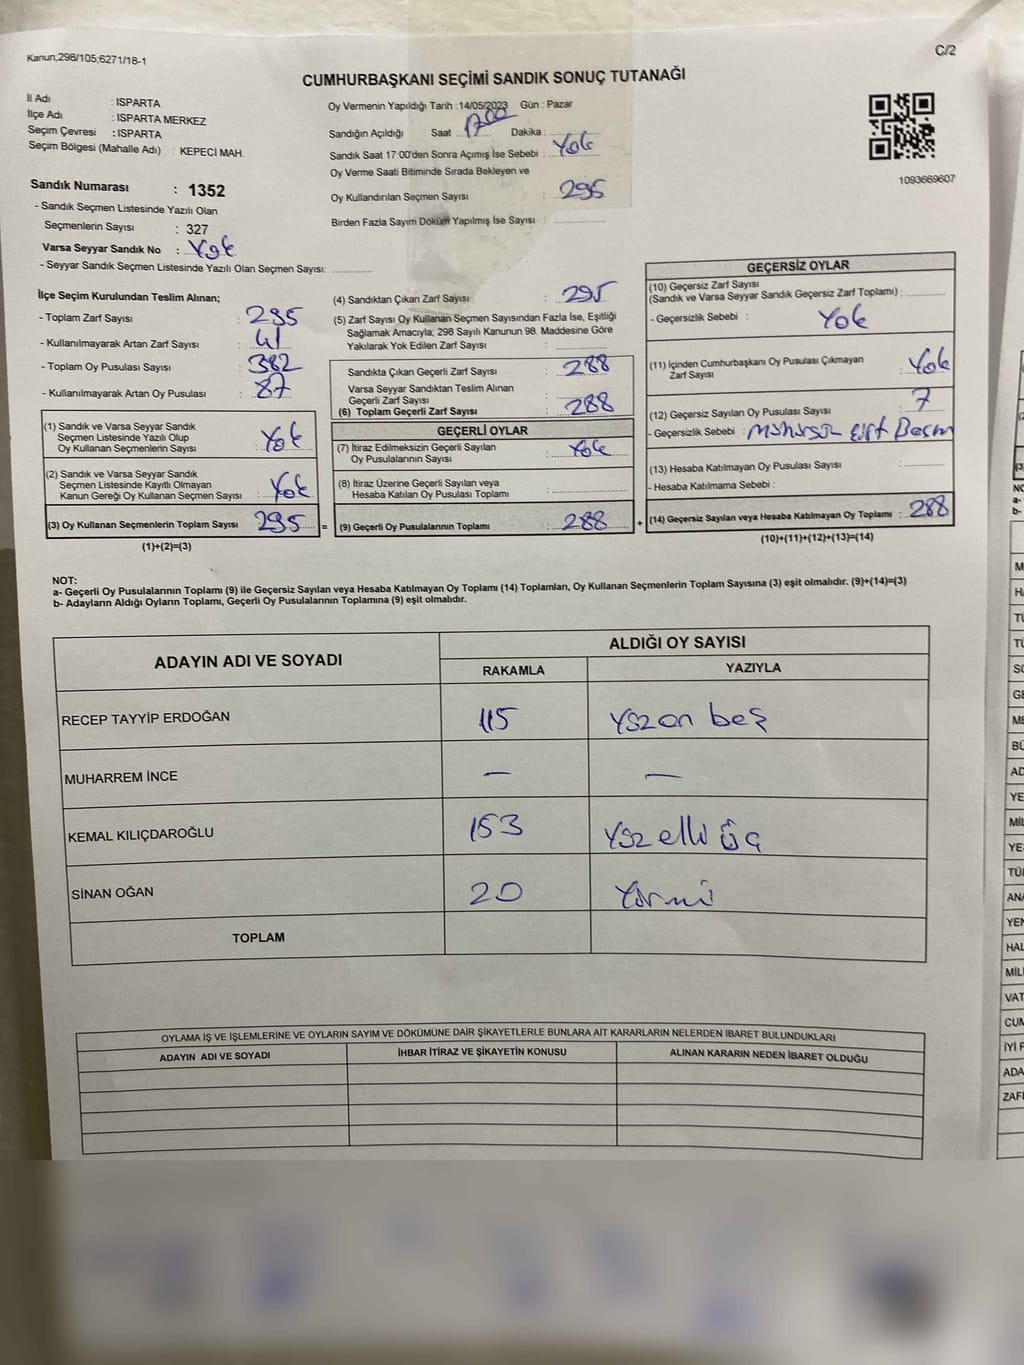 Kanun;298/105;6271/18-1
C/2
CUMHURBAŞKANI SEÇİMİ SANDIK SONUÇ TUTANAĞI
İl Adı : ISPARTA
İlçe Adı : ISPARTA MERKEZ
Seçim Çevresi : ISPARTA
Seçim Bölgesi (Mahalle Adı) : KEPECİ MAH.
Oy Vermenin Yapıldığı Tarih : 14/05/2023 Gün : Pazar
Sandığın Açıldığı Saat 17.00 Dakika :
Sandık Saat 17:00'den Sonra Açımış İse Sebebi : Yok
Oy Verme Saati Bitiminde Sırada Bekleyen ve
Oy Kullandırılan Seçmen Sayısı : 295
Birden Fazla Sayım Döküm Yapılmış İse Sayısı :
1093669607
Sandık Numarası : 1352
- Sandık Seçmen Listesinde Yazılı Olan
Seçmenlerin Sayısı : 327
Varsa Seyyar Sandık No : Yok
- Seyyar Sandık Seçmen Listesinde Yazılı Olan Seçmen Sayısı:
İlçe Seçim Kurulundan Teslim Alınan;
- Toplam Zarf Sayısı : 295
- Kullanılmayarak Artan Zarf Sayısı : 41
- Toplam Oy Pusulası Sayısı : 382
- Kullanılmayarak Artan Oy Pusulası : 87
(1) Sandık ve Varsa Seyyar Sandık
Seçmen Listesinde Yazılı Olup
Oy Kullanan Seçmenlerin Sayısı : Yok
(2) Sandık ve Varsa Seyyar Sandık
Seçmen Listesinde Kayıtlı Olmayan
Kanun Gereği Oy Kullanan Seçmen Sayısı : Yok
(3) Oy Kullanan Seçmenlerin Toplam Sayısı : 295 =
(1)+(2)=(3)
(4) Sandıktan Çıkan Zarf Sayısı : 295
(5) Zarf Sayısı Oy Kullanan Seçmen Sayısından Fazla İse, Eşitliği
Sağlamak Amacıyla; 298 Sayılı Kanunun 98. Maddesine Göre
Yakılarak Yok Edilen Zarf Sayısı :
Sandıkta Çıkan Geçerli Zarf Sayısı : 288
Varsa Seyyar Sandıktan Teslim Alınan
Geçerli Zarf Sayısı :
(6) Toplam Geçerli Zarf Sayısı : 288
GEÇERLİ OYLAR
(7) İtiraz Edilmeksizin Geçerli Sayılan
Oy Pusulalarının Sayısı : Yok
(8) İtiraz Üzerine Geçerli Sayılan veya
Hesaba Katılan Oy Pusulası Toplamı :
(9) Geçerli Oy Pusulalarının Toplamı : 288 +
GEÇERSİZ OYLAR
(10) Geçersiz Zarf Sayısı
(Sandık ve Varsa Seyyar Sandık Geçersiz Zarf Toplamı) :
- Geçersizlik Sebebi : Yok
(11) İçinden Cumhurbaşkanı Oy Pusulası Çıkmayan
Zarf Sayısı : Yok
(12) Geçersiz Sayılan Oy Pusulası Sayısı : 7
- Geçersizlik Sebebi :
(13) Hesaba Katılmayan Oy Pusulası Sayısı :
- Hesaba Katılmama Sebebi :
(14) Geçersiz Sayılan veya Hesaba Katılmayan Oy Toplamı : 288
(10)+(11)+(12)+(13)=(14)
NOT:
a- Geçerli Oy Pusulalarının Toplamı (9) ile Geçersiz Sayılan veya Hesaba Katılmayan Oy Toplamı (14) Toplamları, Oy Kullanan Seçmenlerin Toplam Sayısına (3) eşit olmalıdır. (9)+(14)=(3)
b- Adayların Aldığı Oyların Toplamı, Geçerli Oy Pusulalarının Toplamına (9) eşit olmalıdır.
ADAYIN ADI VE SOYADI
ALDIĞI OY SAYISI
RAKAMLA YAZIYLA
RECEP TAYYİP ERDOĞAN 115 Yüzon beş
MUHARREM İNCE — —
KEMAL KILIÇDAROĞLU 153 Yüzelli üç
SİNAN OĞAN 20 Yirmi
TOPLAM
OYLAMA İŞ VE İŞLEMLERİNE VE OYLARIN SAYIM VE DÖKÜMÜNE DAİR ŞİKAYETLERLE BUNLARA AİT KARARLARIN NELERDEN İBARET BULUNDUKLARI
ADAYIN ADI VE SOYADI İHBAR İTİRAZ VE ŞİKAYETİN KONUSU ALINAN KARARIN NEDEN İBARET OLDUĞU